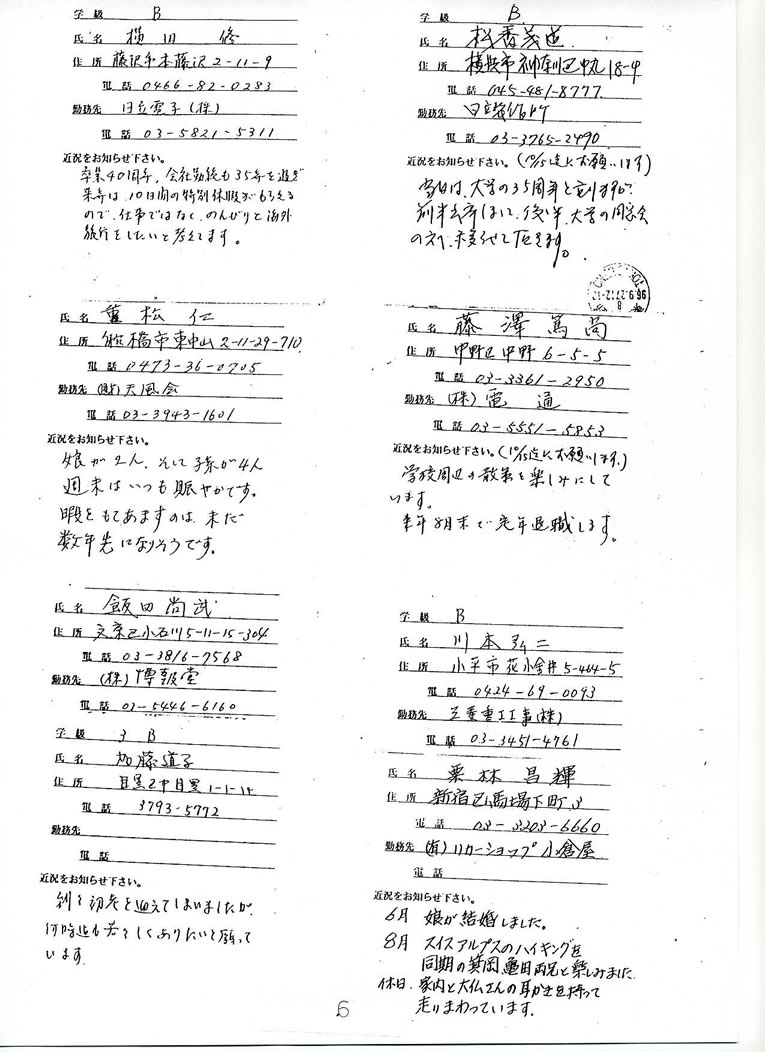 学級 B
氏名 横田 修
住所 藤沢市本藤沢2-11-9
電話 0466-82-0283
勤務先 日立電子(株)
電話 03-5821-5311
近況をお知らせ下さい。
卒業40周年,会社勤続も35年を過ぎ
来年は、10日間の特別休暇がもらえる
ので、仕事ではなく、のんびりと海外
旅行をしたいと考えてます。
氏名 重松 仁
住所 船橋市東中山2-11-29-710
電話 0473-36-0705
勤務先 (財)天風会
電話 03-3943-1601
近況をお知らせ下さい。
娘が2人、そして孫が4人
週末はいつも賑やかです。
暇をもてあますのは、未だ
数年先になりそうです。
氏名 飯田尚武
住所 文京区小石川5-11-15-304
電話 03-3816-7568
勤務先 (株)博報堂
電話 03-5446-6160
学級 3 B
氏名 加藤道子
住所 目黒区中目黒1-1-15
電話 3793-5772
勤務先
電話
近況をお知らせ下さい。
初老を迎えてしまいましたが
何時迄も若々しくありたいと願って
います
学級 B
氏名
住所 横浜市神奈川区中丸18-4
電話 045-481-8777
勤務先 日立
電話 03-3765-2490
近況をお知らせ下さい。(10/5迄にお願いします)
当日は、大学の35周年と
前半 後半、大学の同窓会
の方へ
96.9.27
氏名 藤澤篤尚
住所 中野区中野6-5-5
電話 03-3361-2950
勤務先 (株)電通
電話 03-5551-5853
近況をお知らせ下さい。(10/5迄にお願いします。)
学校周辺の散策を楽しみにして
います。
来年8月末で定年退職します。
学級 B
氏名 川本 二
住所 小平市花小金井5-464-5
電話 0424-69-0093
勤務先 三菱重工工事(株)
電話 03-3451-4761
氏名 栗林昌輝
住所 新宿区馬場下町3
電話 03-3203-6660
勤務先 (有)リカーショップ小倉屋
電話
近況をお知らせ下さい。
6月 娘が結婚しました。
8月 スイスアルプスのハイキングを
同期の箕岡、亀田両兄と楽しみました
休日.家内と大仏さんの耳かきを持って
走りまわっています.
6